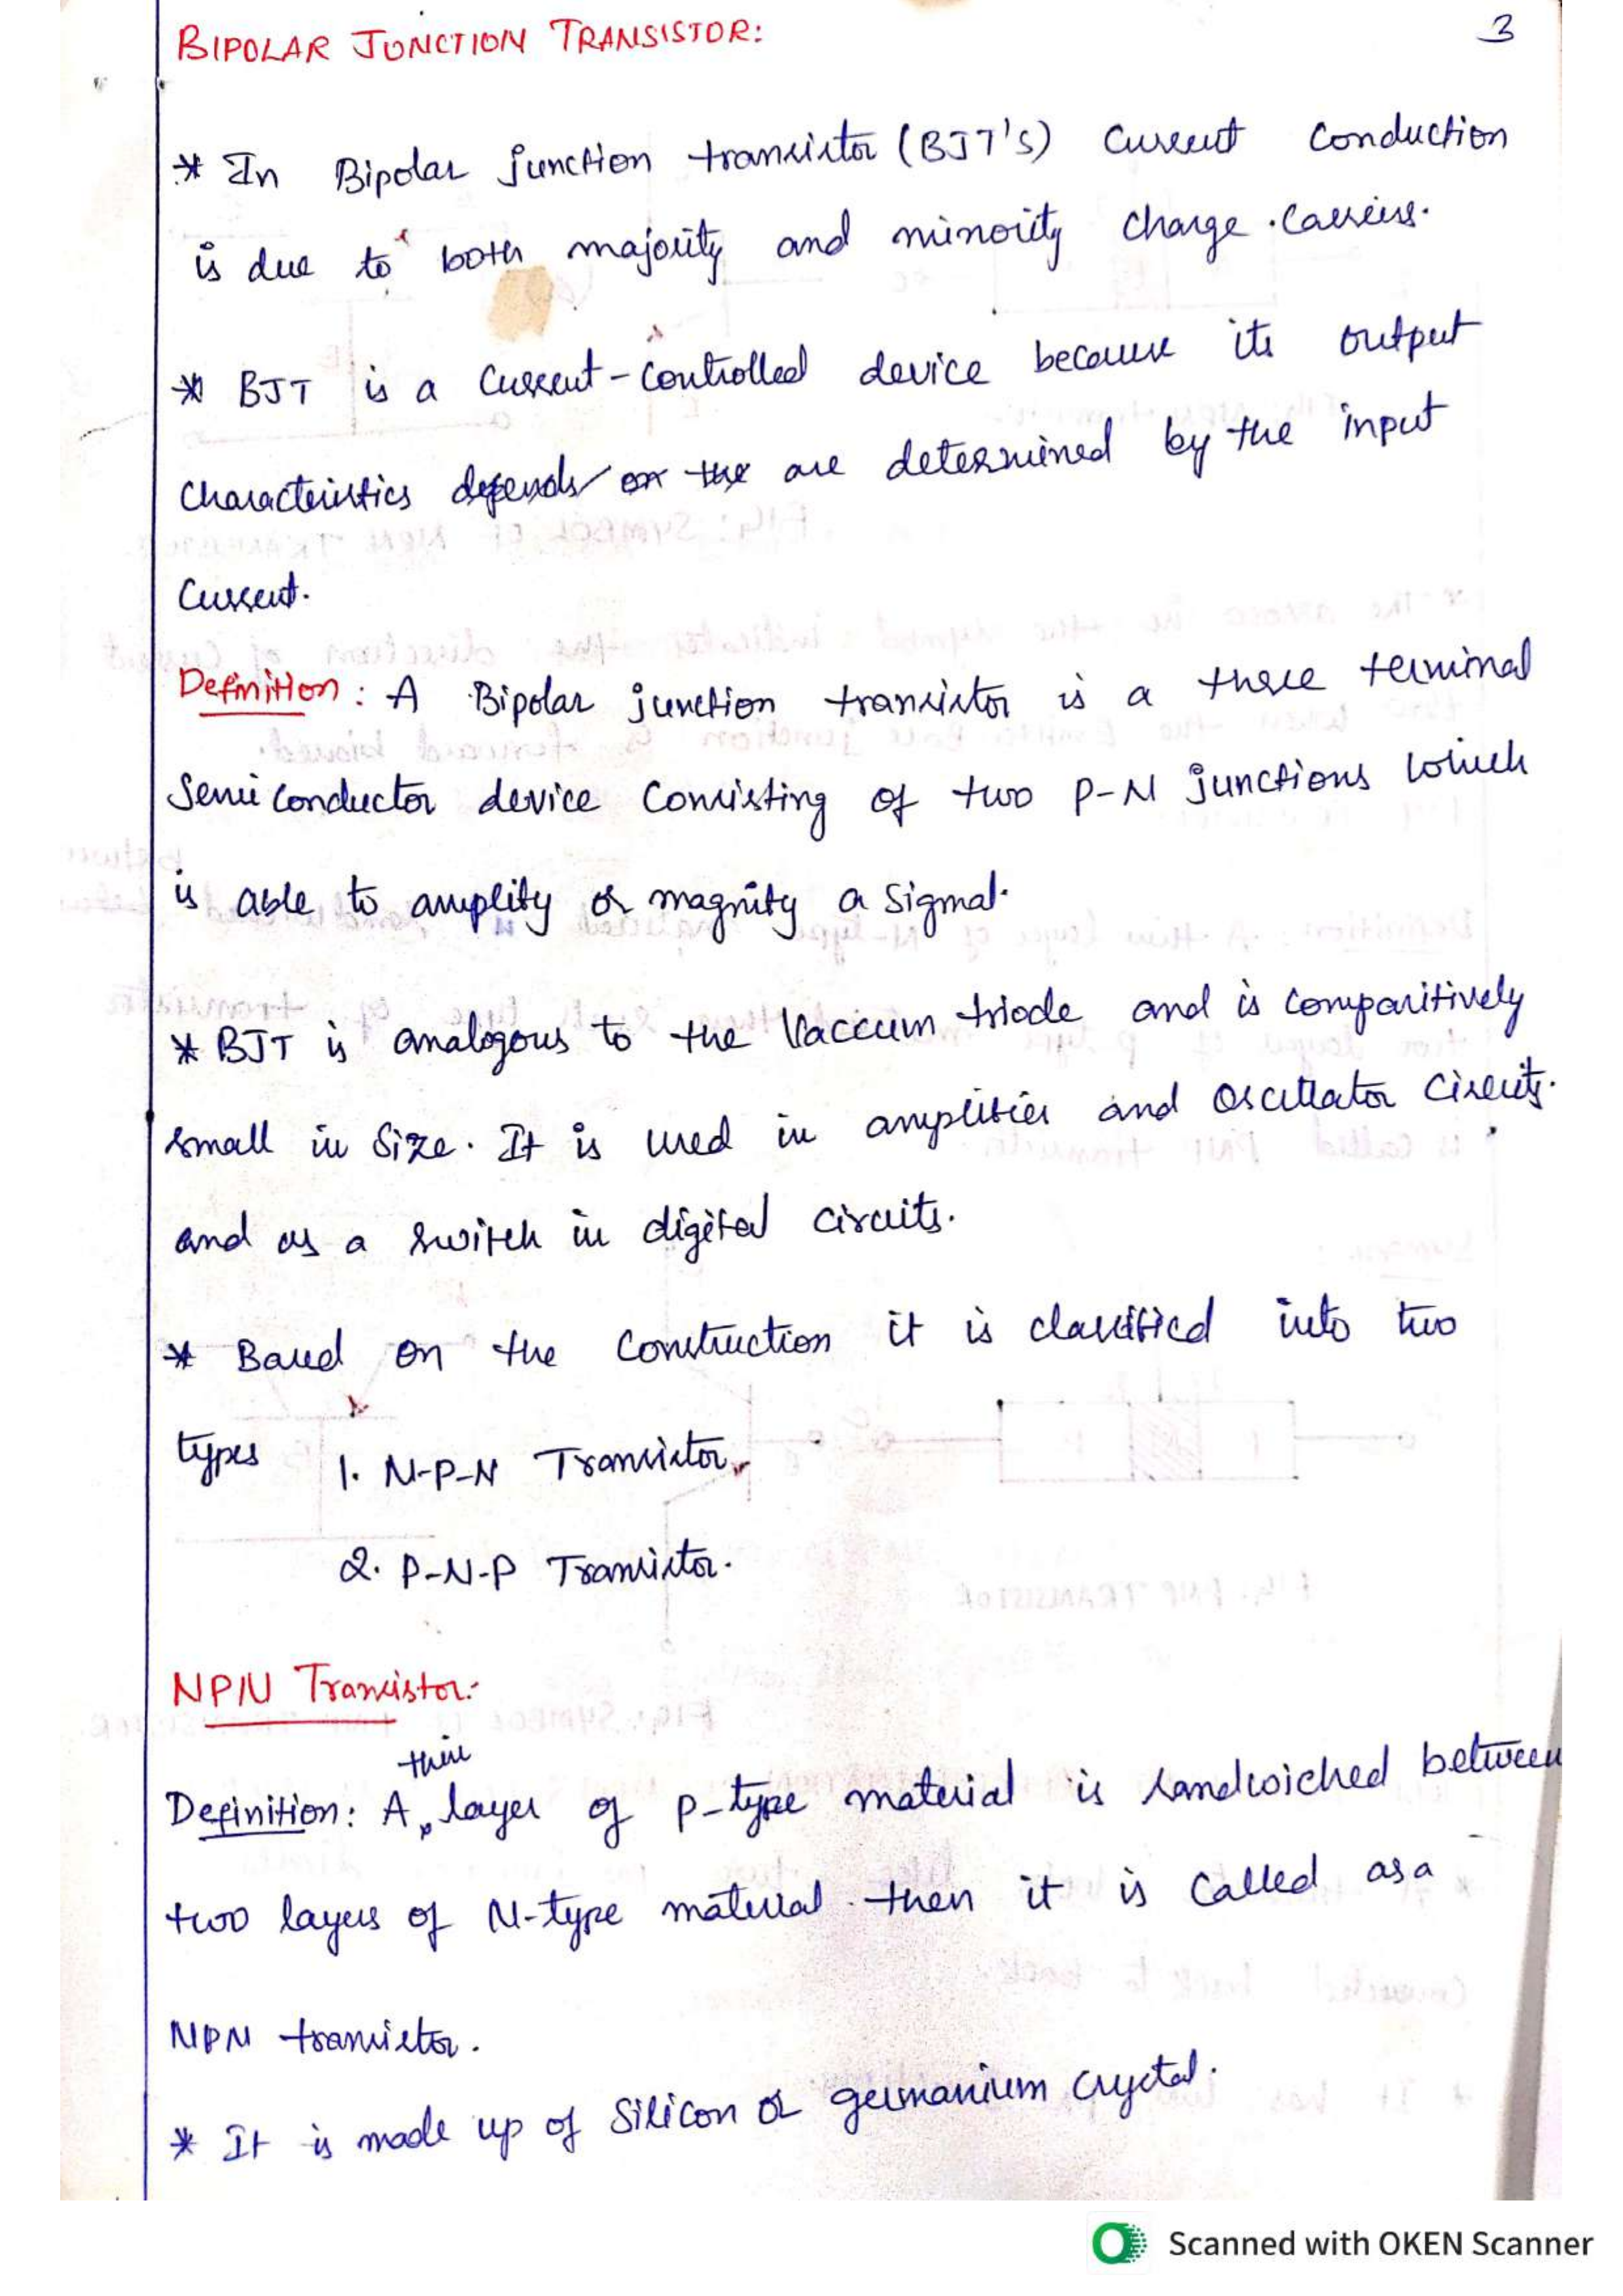 BIPOLAR JUNCTION TRANSISTOR:
3
* In Bipolar junction transistor (BJT's) Current Conduction
is due to both majority and minority charge carriers.
* BJT is a Current-Controlled device because its output
Characteristics depends on the are determined by the input
Current.
Definition: A Bipolar junction transistor is a three terminal
Semi conductor device Consisting of two P-N junctions which
is able to amplify or magnify a signal.
* BJT is analogous to the Vaccum triode and is comparitively
small in size. It is used in amplifier and oscillator circuits.
and as a switch in digital circuits.
* Based on the Construction it is classified into two
types 1. N-P-N Transistor
2. P-N-P Transistor.
NPN Transistor:
thin
Definition: A layer of P-type material is sandwiched between
two layers of N-type material then it is Called as a
NPN transistor.
* It is made up of Silicon or germanium crystal.
Scanned with OKEN Scanner